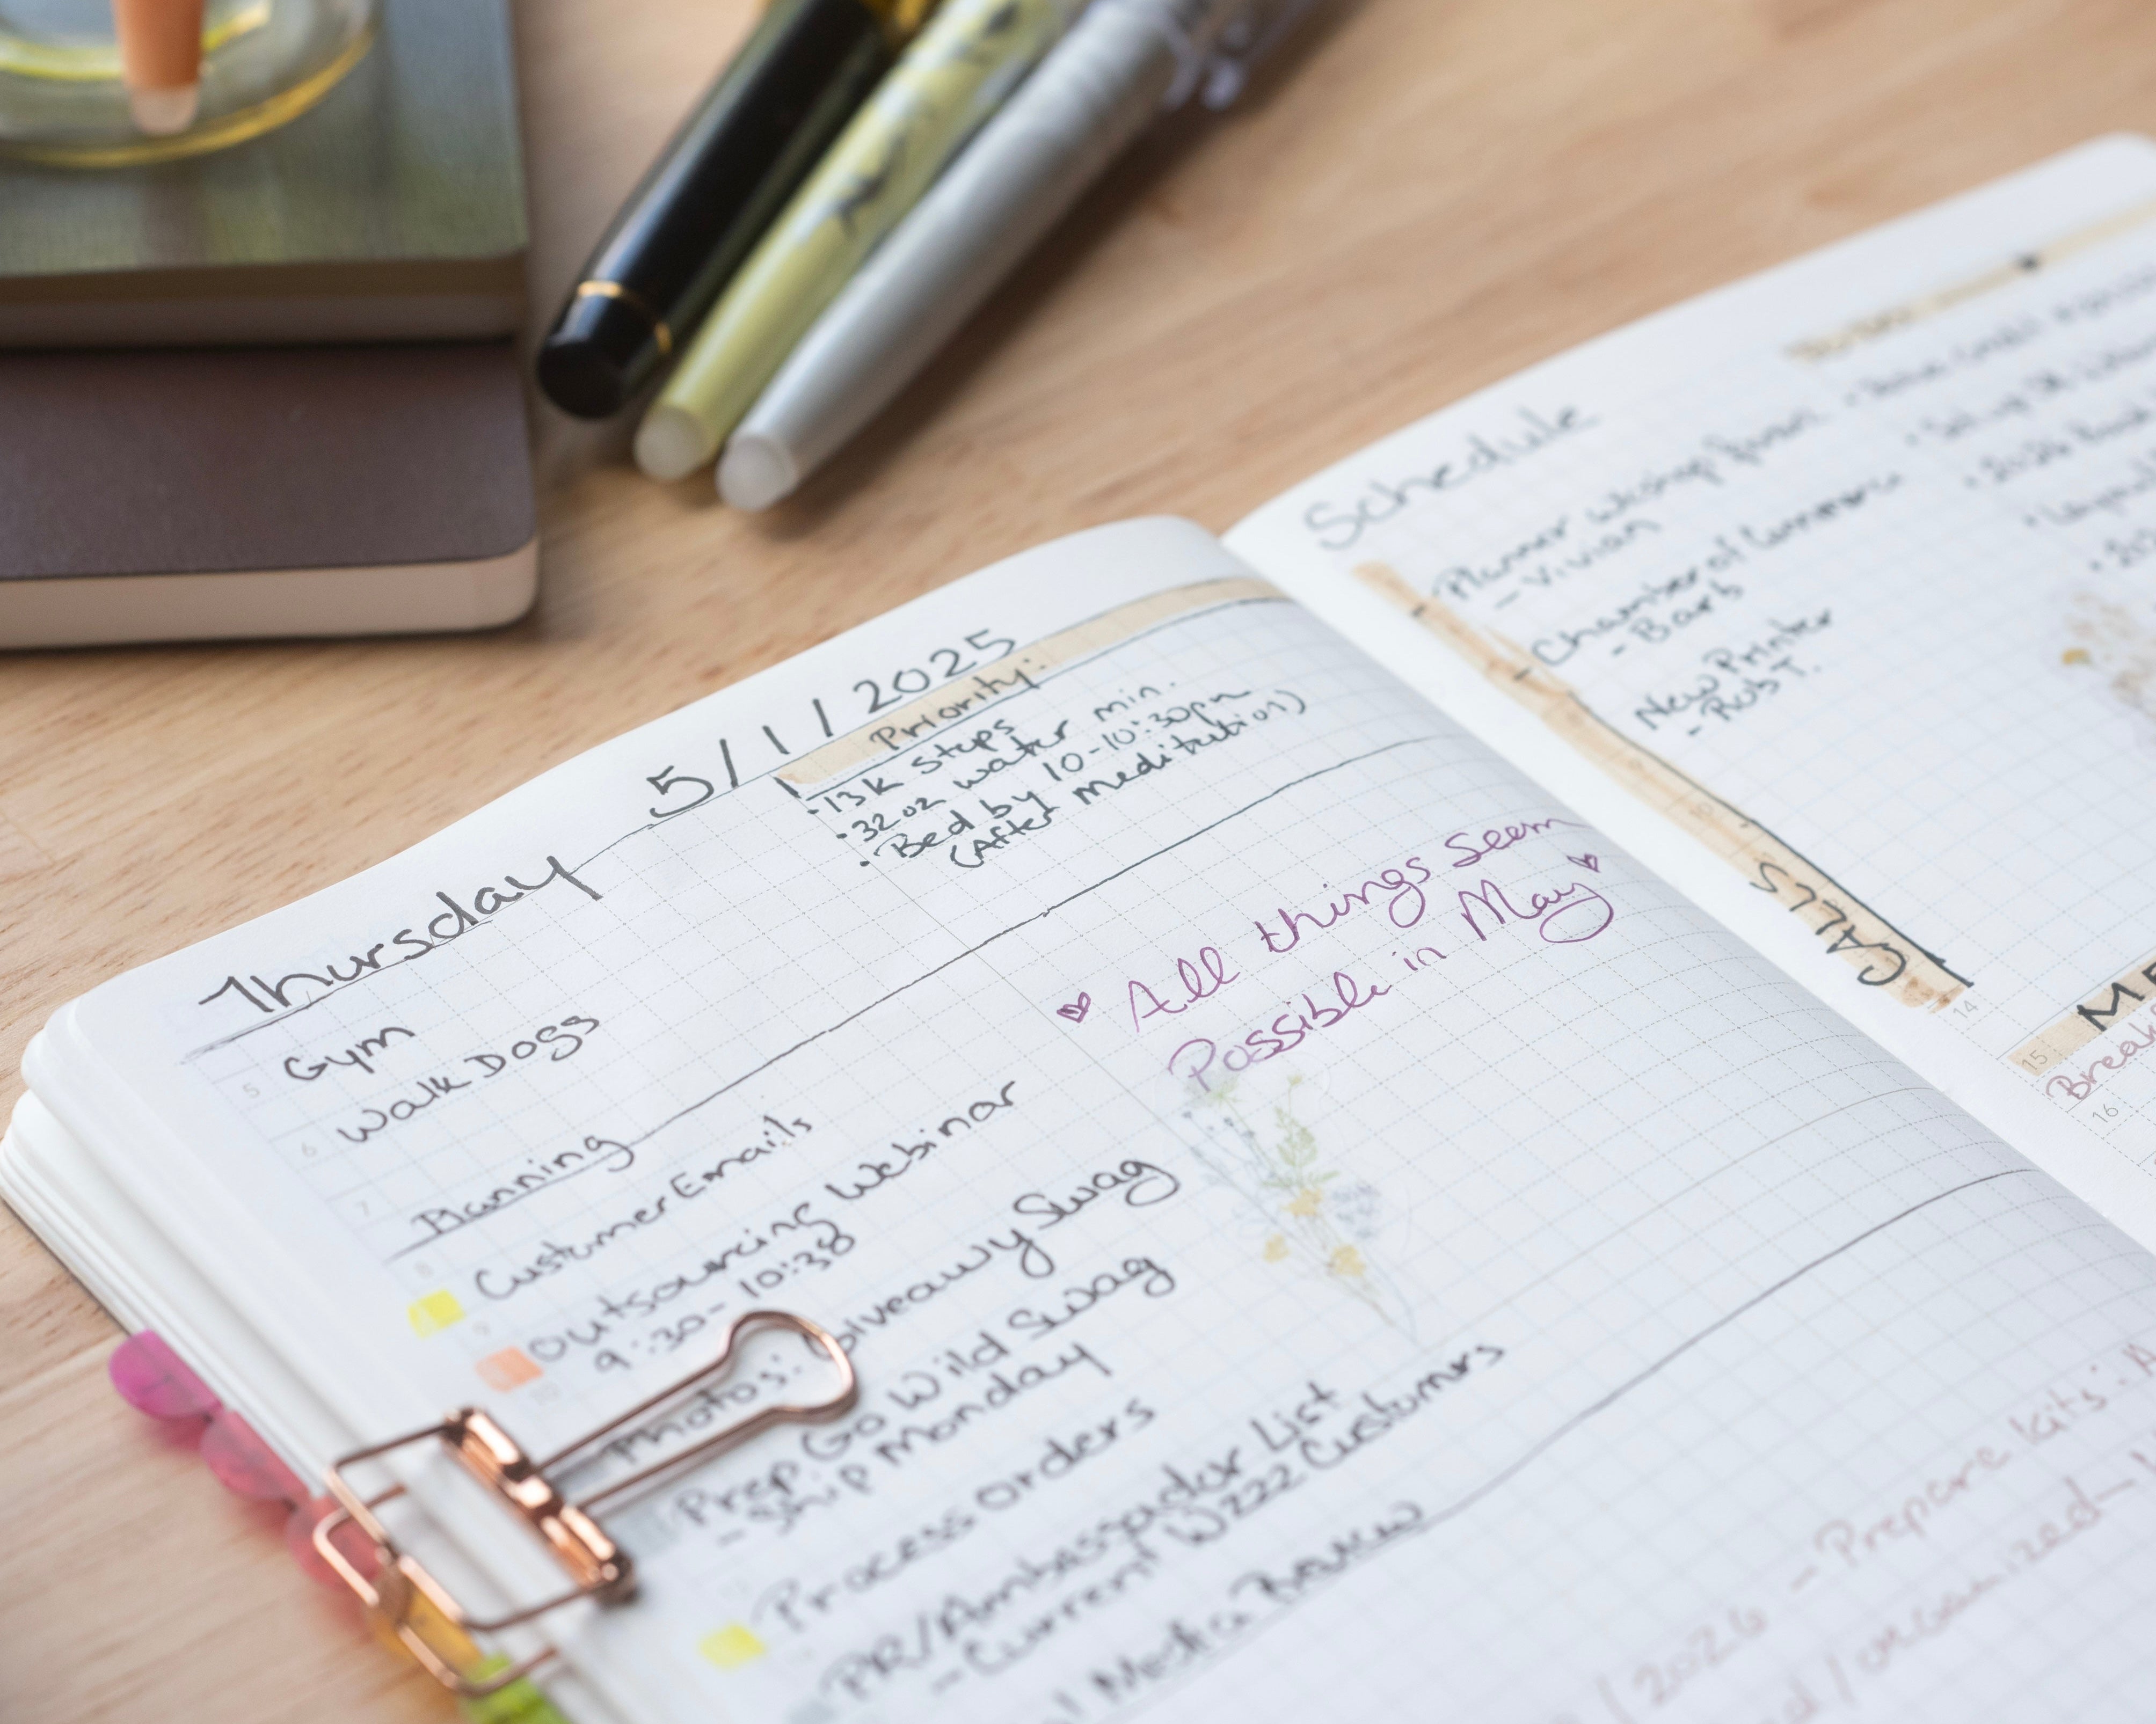 Thursday
5/1/2025
Priority:
• 13k steps
• 32oz water min.
• Bed by 10-10:30pm
(After meditation)
5 Gym
6 Walk Dogs
7 Planning
8 Customer Emails
9 Outsourcing Webinar
9:30-10:30
10
Photos: Giveawy Swag
Prep Go Wild Swag
- Ship Monday
Process orders
PR/Ambassador List
- Current W222 Customers
Media
♥ All things seem
Possible in May ♥
- Prepare kits:
/2026
/organized-
Schedule
- Planner wkshop
- Vivian
- Chamber of Commerce
- Barb
New Printer
- Rob T.
CALLS
14
15
16